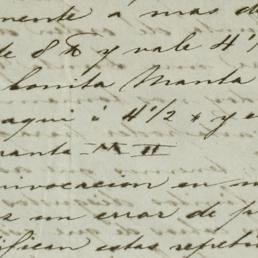 mente a mas de
de 8 ℔ y vale 4 1/
bonita Manta
aqui á 4 1/2 y
ranta N II
ivocacion en
un error de
ifican estas repeti